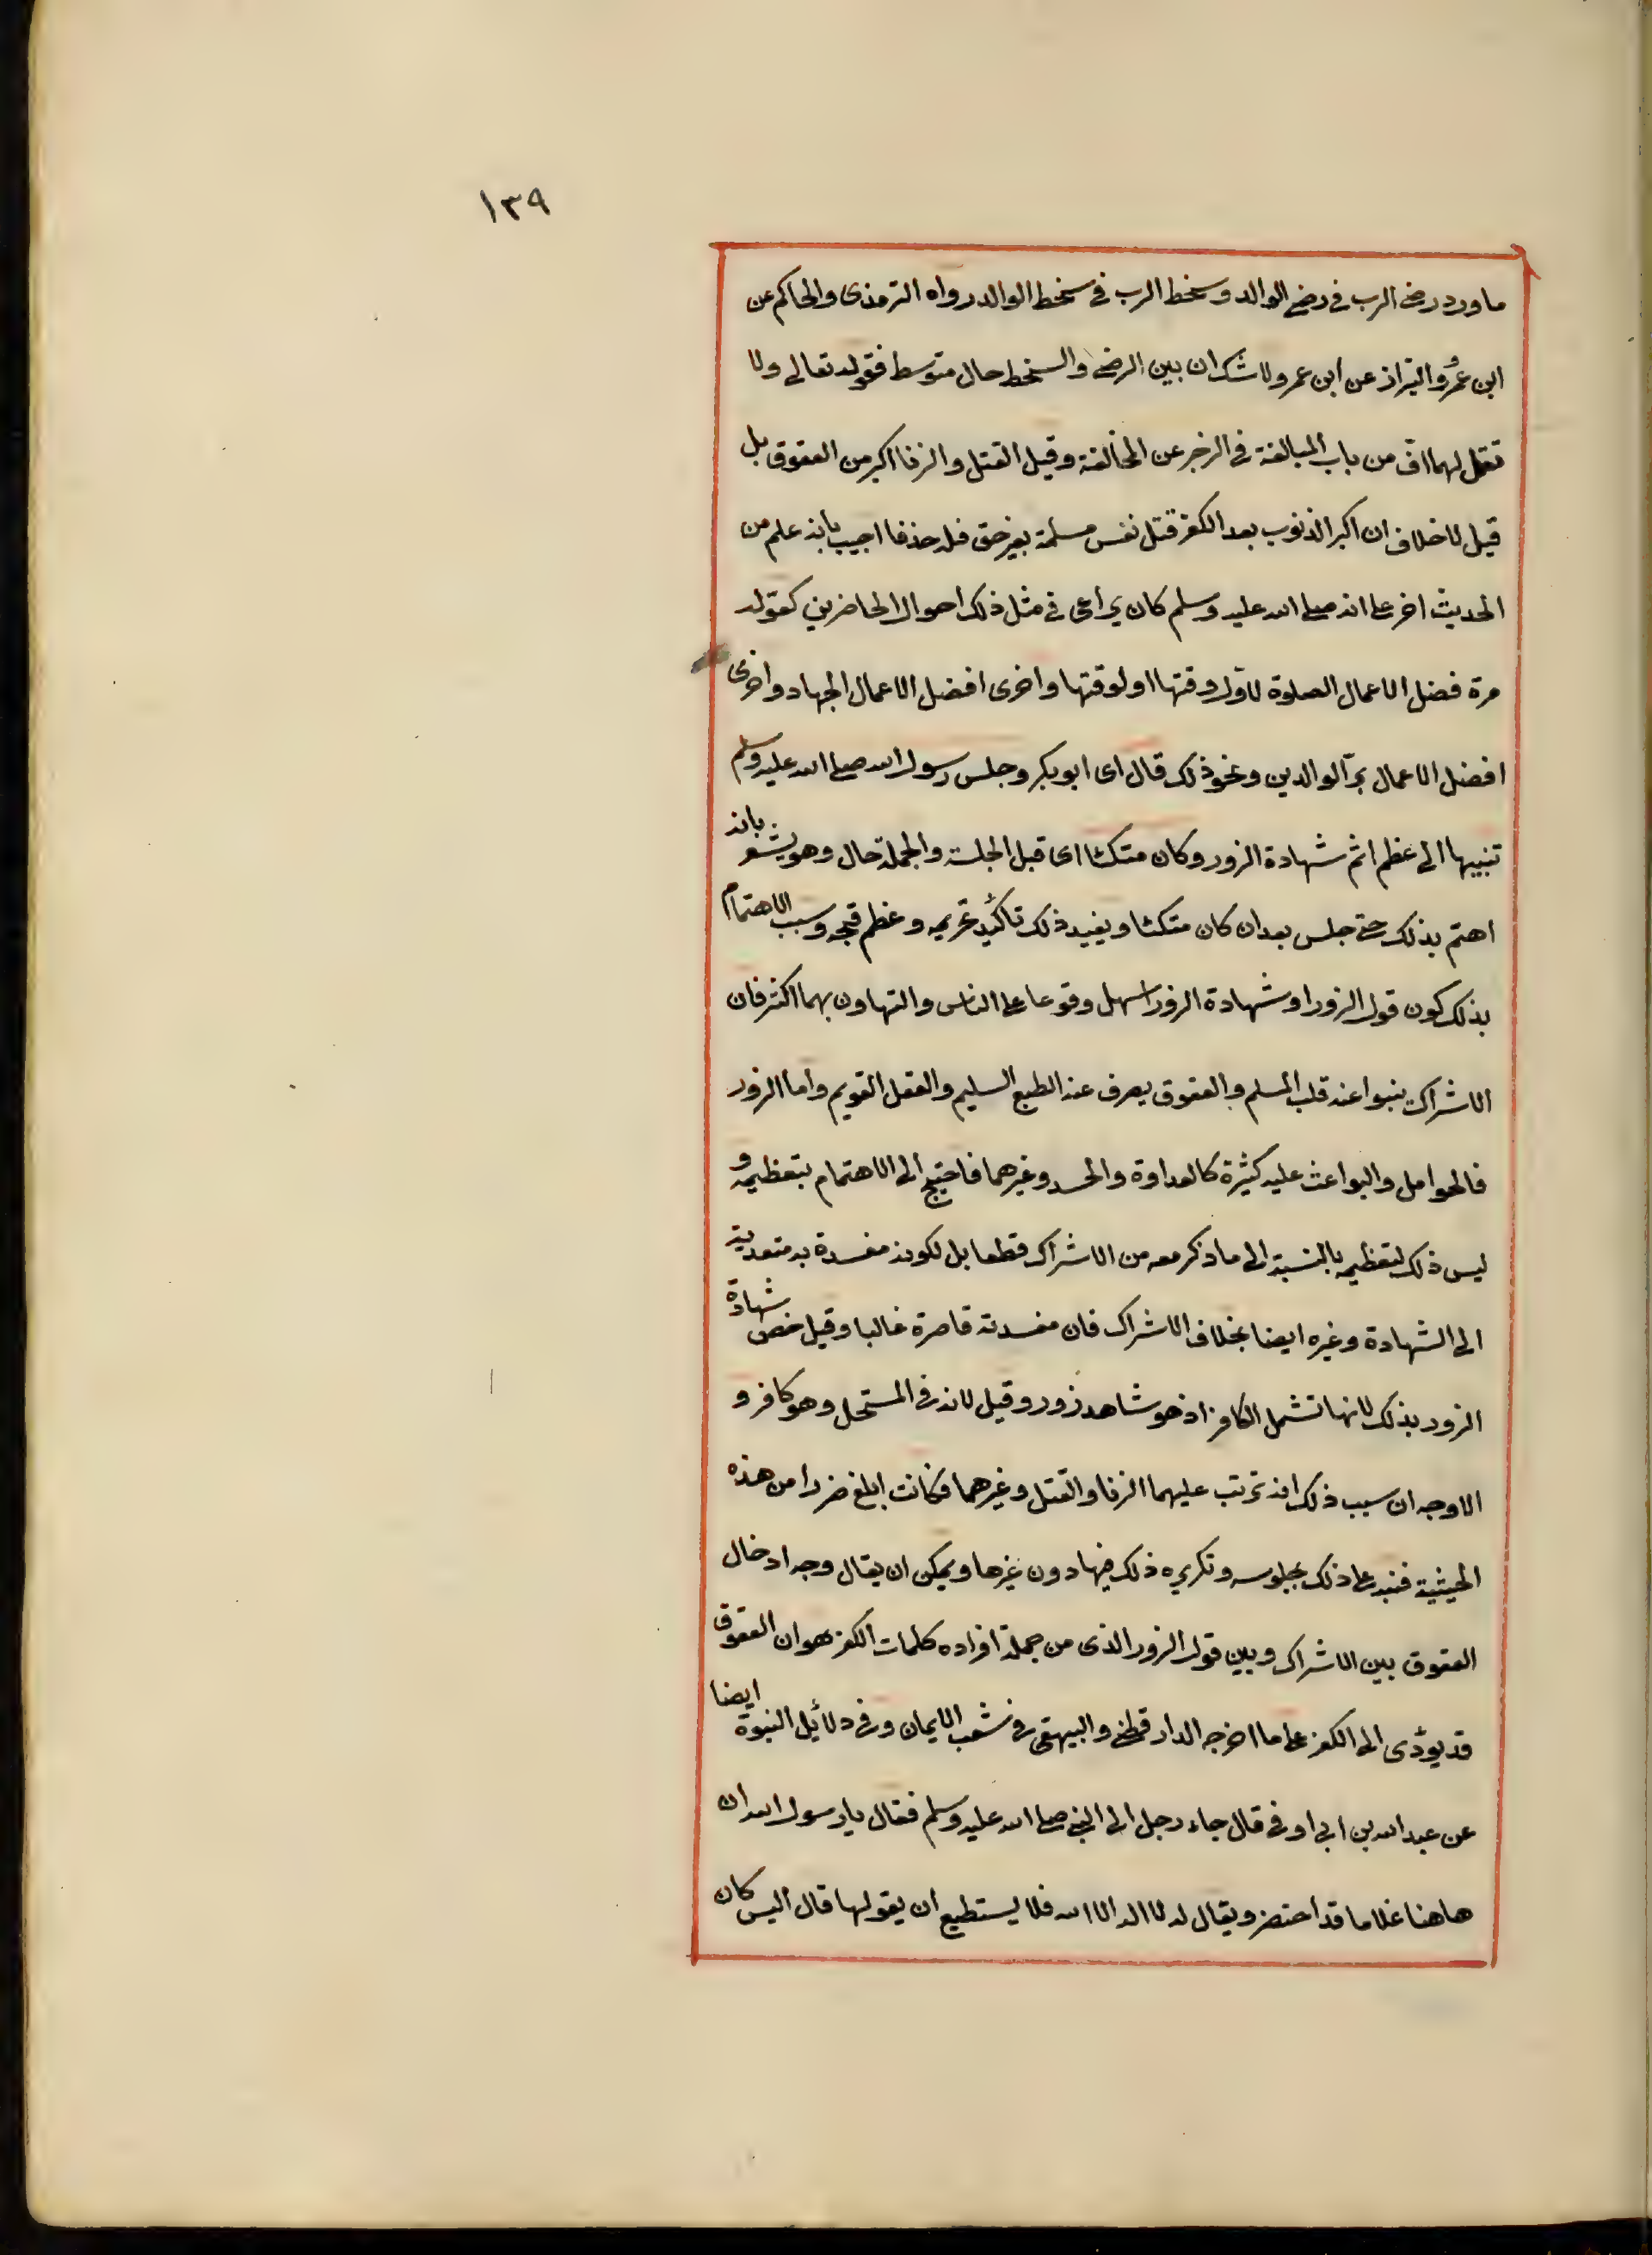 ١٣٩
ما ورد رضى الرب فى رضى الوالد وسخط الرب فى سخط الوالد رواه الترمذى والحاكم عن
ابن عمرو والبزاز عن ابن عمر ولا شك ان بين الرضى والسخط حال متوسط فقوله تعالى ولا
تقل لهما اف من باب المبالغة فى الزجر عن المخالفة وقيل القتل والزنا اكبر من العقوق بل
قيل لا خلاف ان اكبر الذنوب بعد الكفر قتل نفس مسلمة بغير حق فلم حذفا اجيب بانه علم من
الحديث اخر على انه صلى الله عليه وسلم كان يراعى فى مثل ذلك احوال الحاضرين كقوله
مرة فضل الاعمال الصلوة لاول وقتها او لوقتها واخرى افضل الاعمال الجهاد واخرى
افضل الاعمال بر الوالدين ونحو ذلك قال اى ابو بكر وجلس رسول الله صلى الله عليه وسلم
تنبيها الى عظم اثم شهادة الزور وكان متكئا اى قبل الجلسة والجملة حال وهو يشعر بانه
اهتم بذلك حتى جلس بعد ان كان متكئا ويفيد ذلك تأكيد تحريمه وعظم قبحه وسبب الاهتمام
بذلك كون قول الزور او شهادة الزور اسهل وقوعا على الناس والتهاون بهما اكثر فان
الاشراك ينبوا عنه قلب المسلم والعقوق يصرف عنه الطبع السليم والعقل القويم واما الزور
فالحوامل والبواعث عليه كثيرة كالعداوة والحسد وغيرهما فاحتيج الى الاهتمام بتعظيمه و
ليس ذلك لتعظيمه بالنسبة الى ما ذكر معه من الاشراك قطعا بل لكونه مفسدة به متعدية
الى الشهادة وغيره ايضا بخلاف الاشراك فان مفسدته قاصرة غالبا وقيل خص شهادة
الزور بذلك لانها تشمل الكافر اذ هو شاهد زور وقيل لانه فى المستحل وهو كافر و
الاوجه ان سبب ذلك انه ترتب عليهما الزنا والقتل وغيرهما فكانت ابلغ ضررا من هذه
الحيثية فنبه على ذلك بجلوسه وتكريره ذلك فيها دون غيرها ويمكن ان يقال وجه ادخال
العقوق بين الاشراك وبين قول الزور الذى من جملة افراده كلمات الكفر هو ان العقوق
قد يؤدى الى الكفر على ما اخرجه الدار قطنى والبيهقى فى شعب الايمان وفى دلائل النبوة ايضا
عن عبد الله بن ابى اوفى قال جاء رجل الى النبى صلى الله عليه وسلم فقال يا رسول الله ان
هاهنا غلاما قد احتضر ويقال له لا اله الا الله فلا يستطيع ان يقولها قال اليس كان